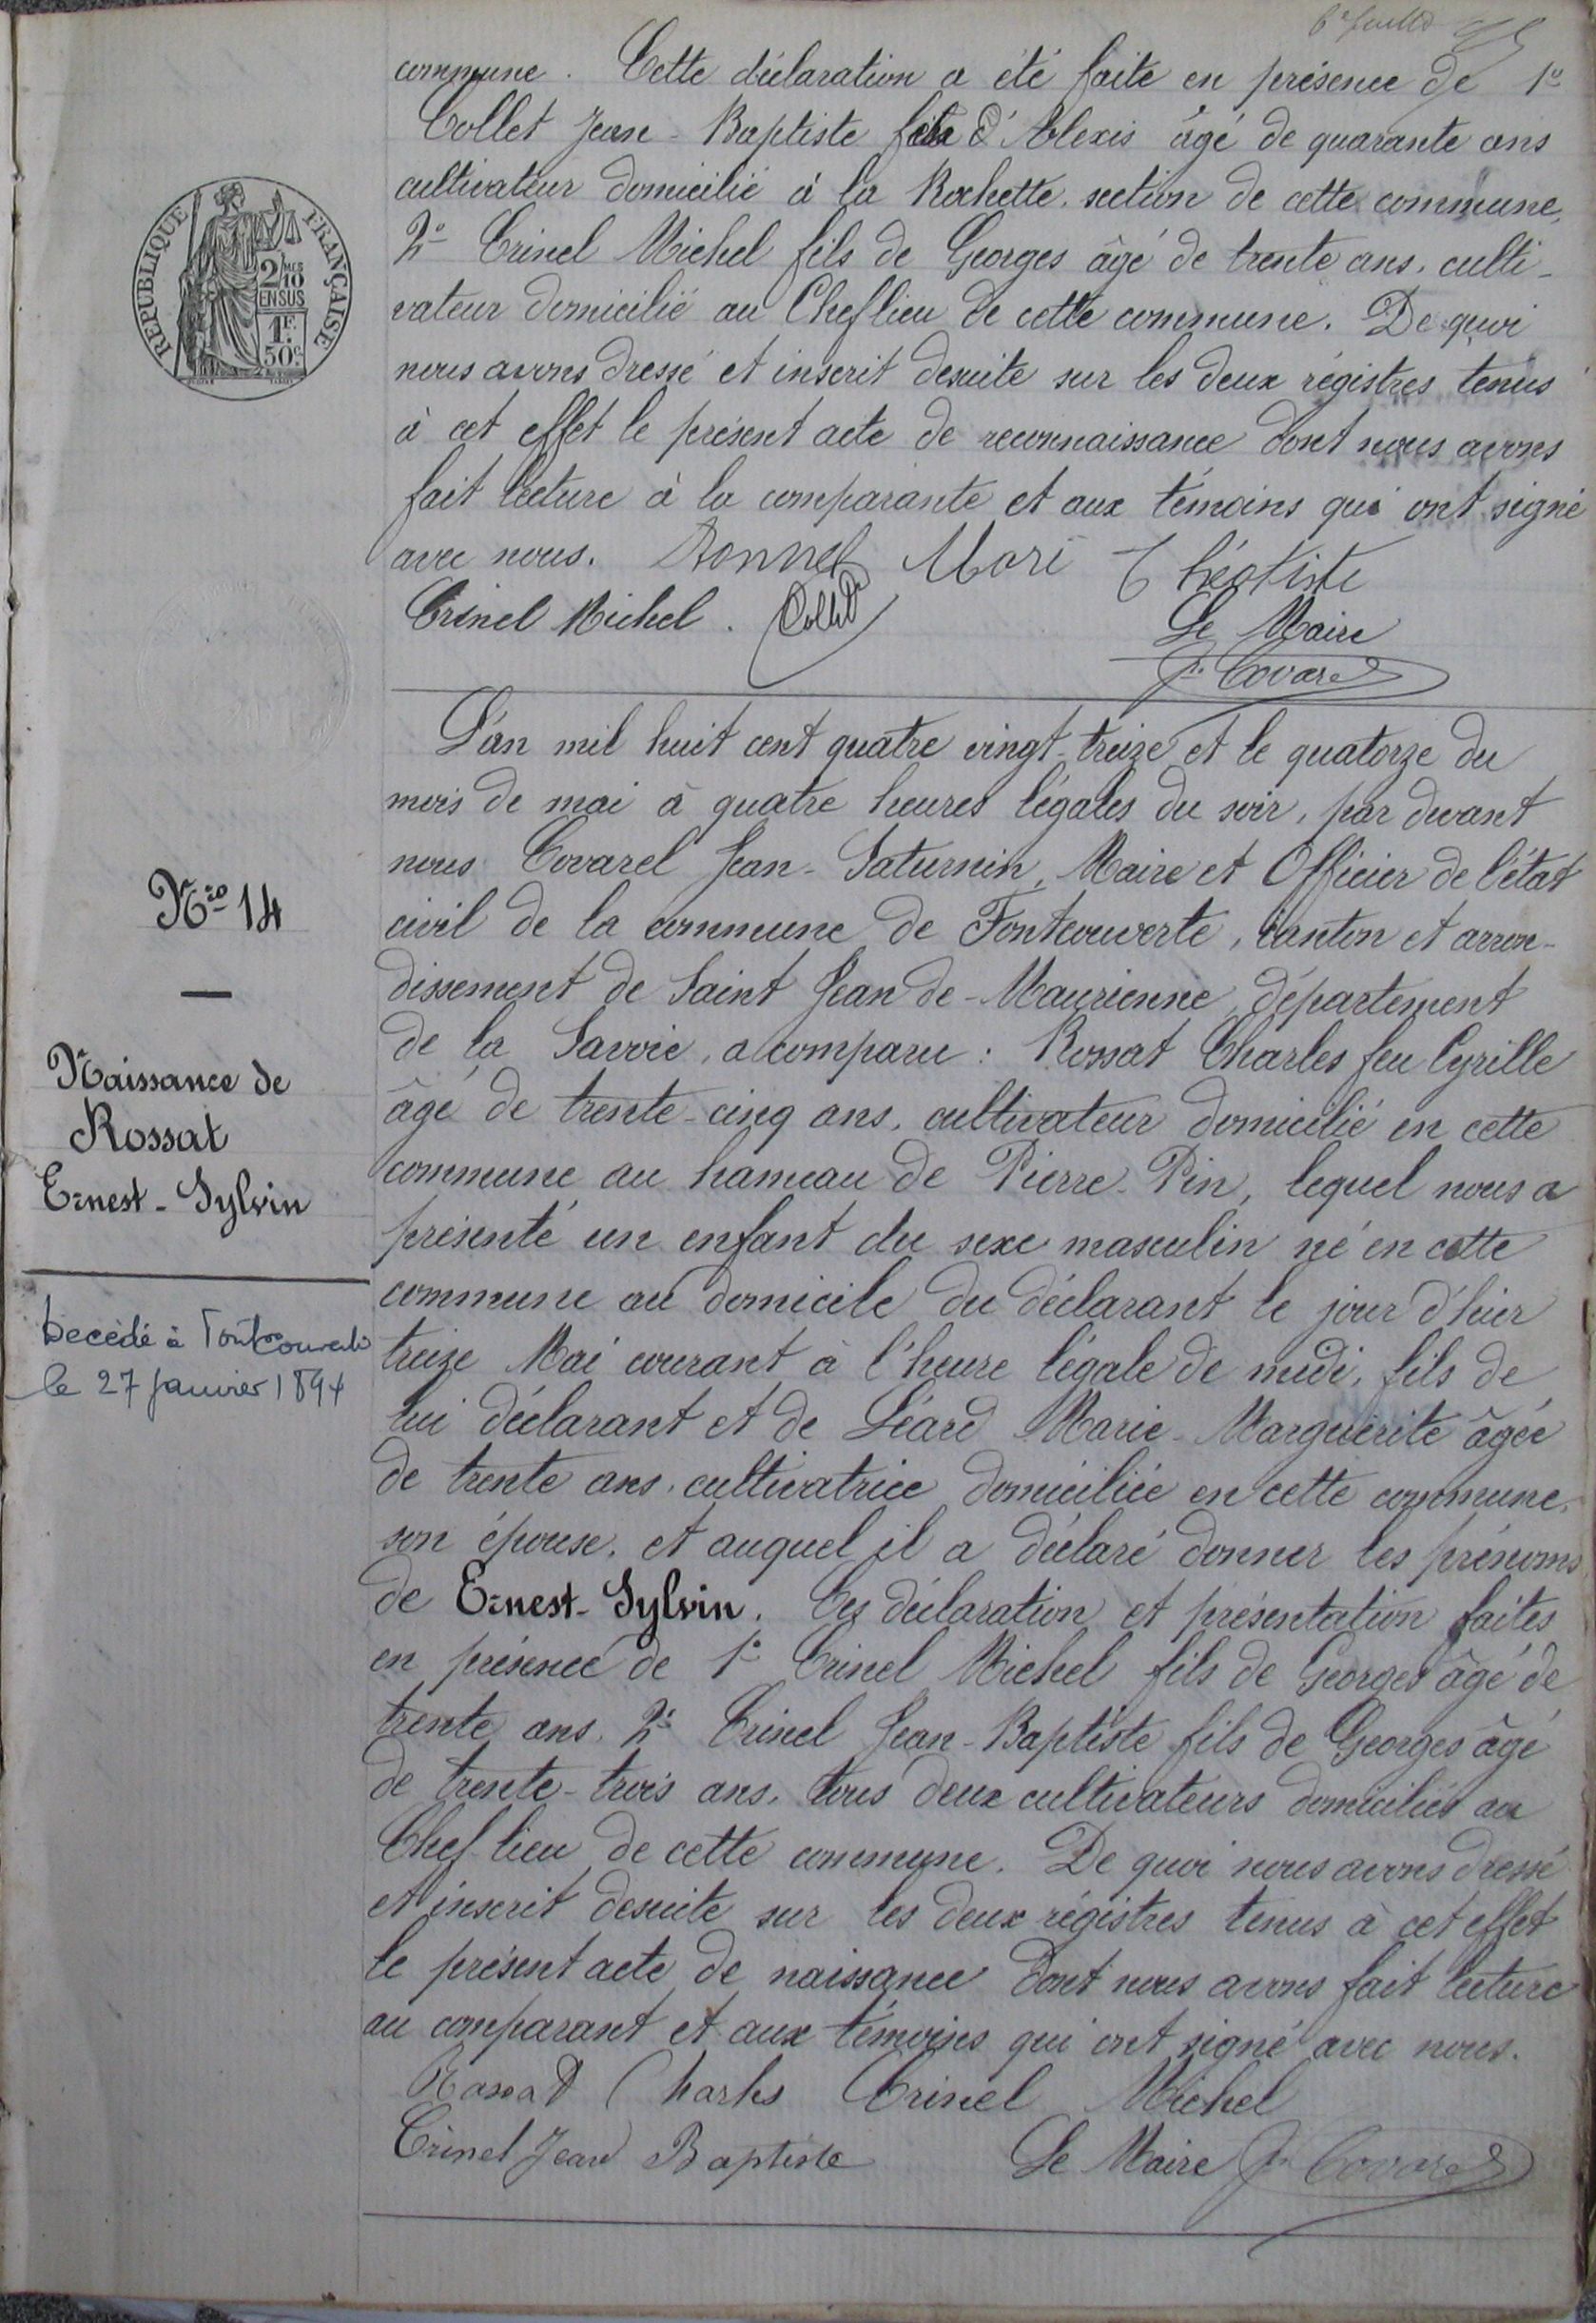 6e feuillet
commune. Cette déclaration a été faite en présence de 1o
Collet Jean-Baptiste feu d'Alexis âgé de quarante ans
cultivateur domicilié à la Rochette, section de cette commune,
2o Crinel Michel fils de Georges âgé de trente ans, culti-
vateur domicilié au Cheflieu de cette commune. De quoi
nous avons dressé et inscrit desuite sur les deux régistres tenus
à cet effet le présent acte de reconnaissance dont nous avons
fait lecture à la comparante et aux témoins qui ont signé
avec nous. Bonnel Mari Théotiste
Crinel Michel. Collet
Le Maire
J. Covarel
REPUBLIQUE FRANÇAISE
2/10 MES
EN SUS
1F.
50c.
L'an mil huit cent quatre vingt-treize et le quatorze du
mois de mai à quatre heures légales du soir, par devant
nous Covarel Jean-Saturnin, Maire et Officier de l'état
civil de la commune de Fontcouverte, canton et arron-
dissement de Saint Jean de-Maurienne, département
de la Savoie, a comparu : Rossat Charles feu Cyrille
âgé de trente-cinq ans, cultivateur domicilié en cette
commune au hameau de Pierre-Pin, lequel nous a
présenté un enfant du sexe masculin né en cette
commune au domicile du déclarant le jour d'hier
treize Mai courant à l'heure légale de midi, fils de
lui déclarant et de Léard Marie-Marguerite âgée
de trente ans, cultivatrice domiciliée en cette commune,
son épouse, et auquel il a déclaré donner les prénoms
de Ernest-Sylvin. Ces déclaration et présentation faites
en présence de 1o Crinel Michel fils de Georges âgé de
trente ans. 2o Crinel Jean-Baptiste fils de Georges âgé
de trente-trois ans, tous deux cultivateurs domiciliés au
Chef-lieu de cette commune. De quoi nous avons dressé
et inscrit desuite sur les deux régistres tenus à cet effet
le présent acte de naissance dont nous avons fait lecture
au comparant et aux témoins qui ont signé avec nous.
Rossat Charles Crinel Michel
Crinel Jean Baptiste Le Maire J. Covarel
Nro 14
Naissance de
Rossat
Ernest-Sylvin
Decédé à Fontcouverte
le 27 Janvier 1894